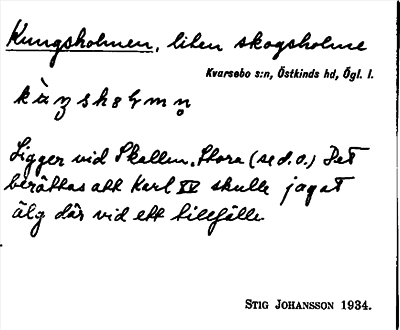 Kungsholmen, liten skogsholme
Kvarsebo s:n, Östkinds hd, Ögl. l.
Ligger vid Skallen, Stora (se d.o.) Det
berättas att Karl XV skulle jagat
älg där vid ett tillfälle.
STIG JOHANSSON 1934.